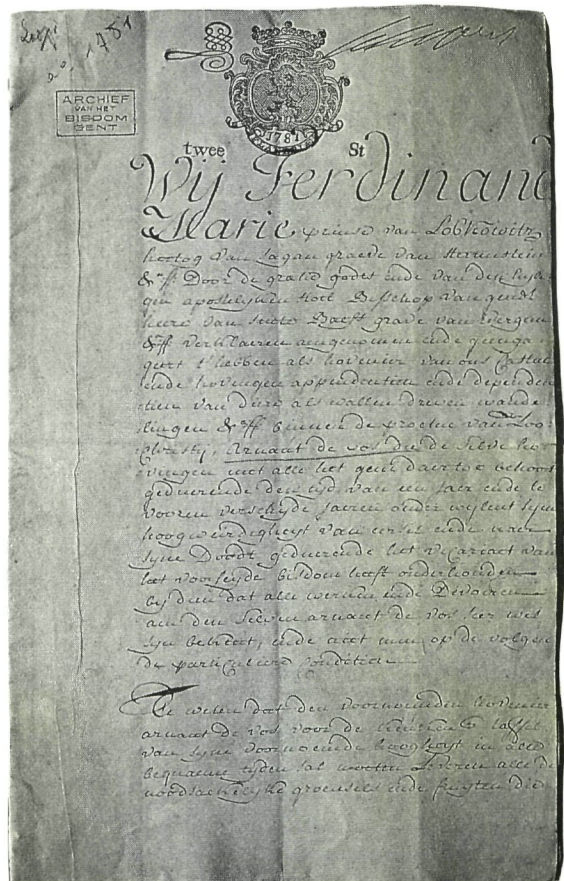 1781
ARCHIEF
VAN HET
BISDOM
GENT
1781
twee St
Wij Ferdinand
Marie prince van Lobkowitz
hertog van Sagan graeve van Sternstein
Door de gratie godts ende van den
gen apostelijken stoel Bisschop van gendt
heere van Baefs grave van Evergem
verklaeren aengenomen ende
geert t'hebben als hovenier van ons Casteel
ende hovingen appendentien ende dependen
tien van diere als wallen dreven wande
lingen binnen de prochie van Loo
Christy, Arnaut de vos die de selve ho
vingen met alle het gene daer toe behoort
geduerende den tyd van een jaer ende te
vooren verscheyde jaeren onder wylent syn
hoogweirdigheyt van ersel ende naer
syne Doodt geduerende het vicariaet van
het voorseyde bisdom heeft onderhouden
by dien dat alle
aen den selven arnaut de vos seer wel
syn bekent, ende dat op de volgen
de particuliere conditien
Te weten dat den voornoemden hovenier
arnaut de vos voor de taffel
van syne voornoemde hoogheyt in alle
bequaeme tyden sal moeten leveren alle de
noodsaekelyke groensels ende fruyten die